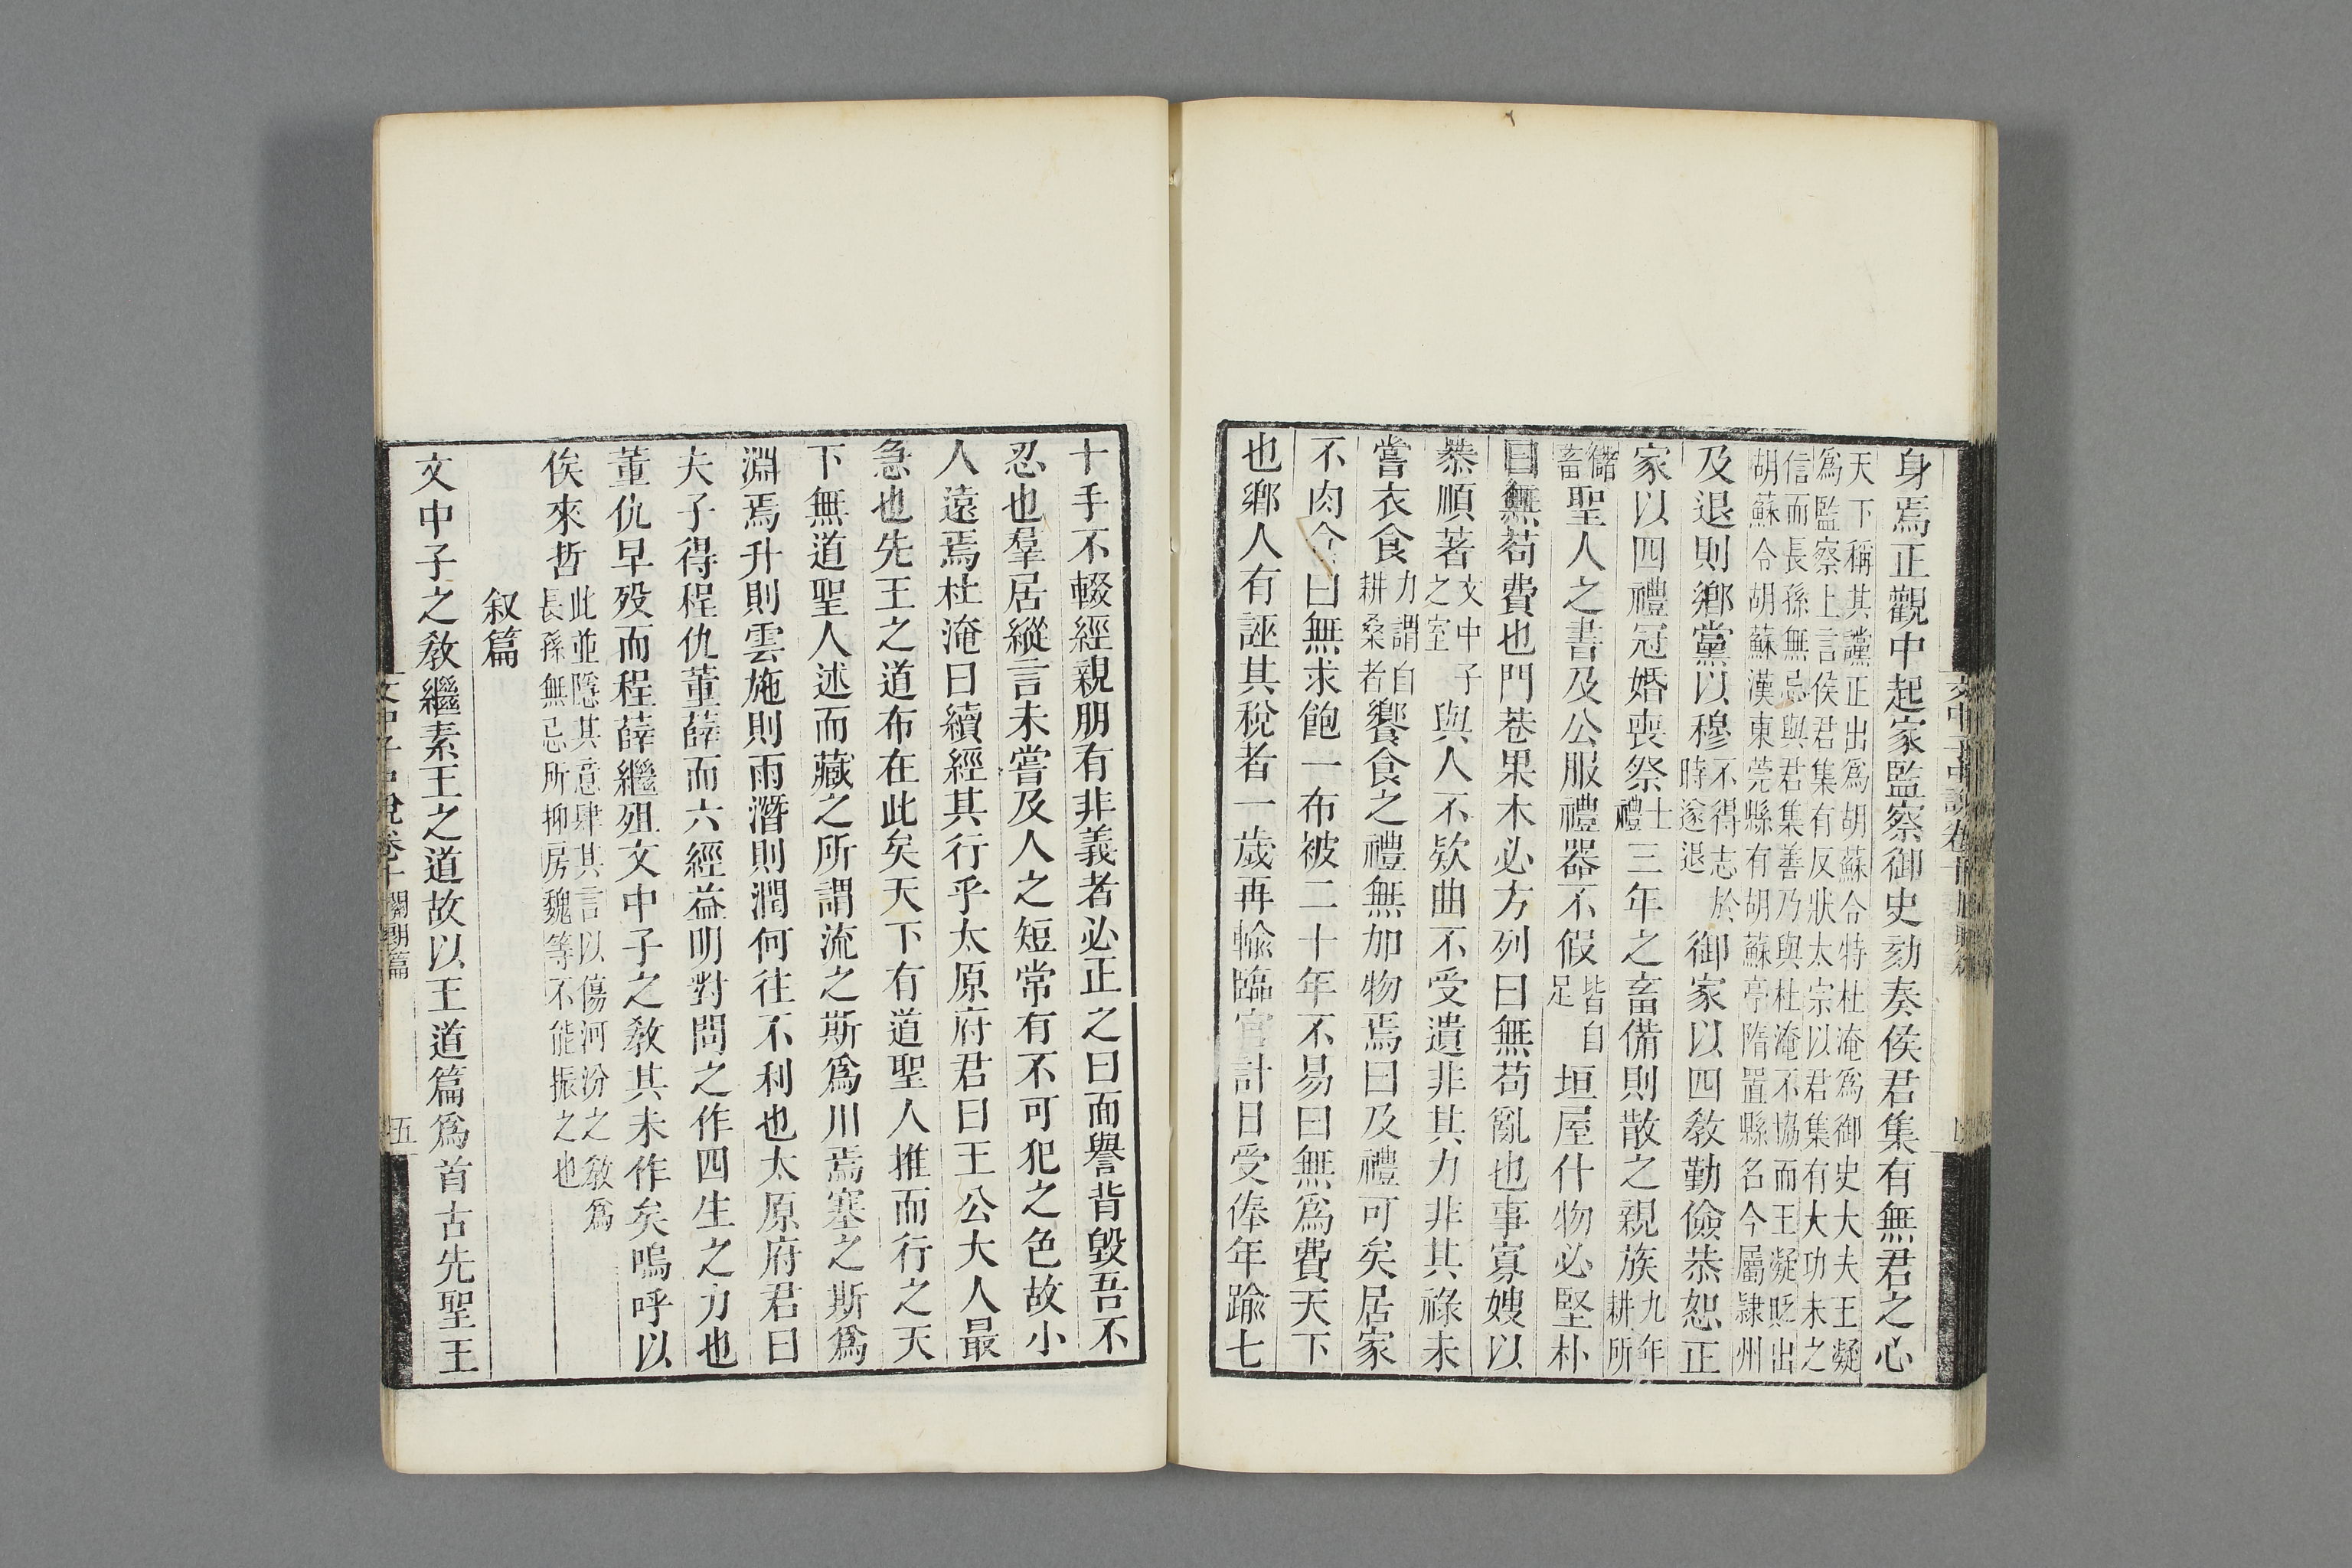 身焉正觀中起家監察御史劾奏侯君集有無君之心
天下稱其讜正出爲胡蘇令特杜淹爲御史大夫王凝
爲監察上言侯君集有反狀太宗以君集有大功未之
信而長孫無忌與君集善乃與杜淹不協而王凝貶出
胡蘇令胡蘇漢東莞縣有胡蘇亭隋置縣名今屬隷州
及退則鄉黨以穆不得志於時遂退御家以四教勤儉恭恕正
家以四禮冠婚喪祭士禮三年之畜備則散之親族九年耕所
儲畜聖人之書及公服禮器不假皆自足垣屋什物必堅朴
曰無苟費也門巷果木必方列曰無苟亂也事寡嫂以
恭順著文中子之室與人不欵曲不受遺非其力非其祿未
嘗衣食力謂自耕桑者饗食之禮無加物焉曰及禮可矣居家
不肉食曰無求飽一布被二十年不易曰無爲費天下
也鄉人有誣其稅者一歲再輸臨官計日受俸年踰七
十手不輟經親朋有非義者必正之曰面譽背毀吾不
忍也羣居縱言未嘗及人之短常有不可犯之色故小
人遠焉杜淹曰續經其行乎太原府君曰王公大人最
急也先王之道布在此矣天下有道聖人推而行之天
下無道聖人述而藏之所謂流之斯爲川焉塞之斯爲
淵焉升則雲施則雨潛則潤何往不利也太原府君曰
夫子得程仇董薛而六經益明對問之作四生之力也
董仇早歿而程薛繼殂文中子之教其未作矣嗚呼以
俟來哲此並隱其意肆其言以傷河汾之教爲長孫無忌所抑房魏等不能振之也
叙篇
文中子之教繼素王之道故以王道篇爲首古先聖王
文中子中說卷十 關朗篇 五